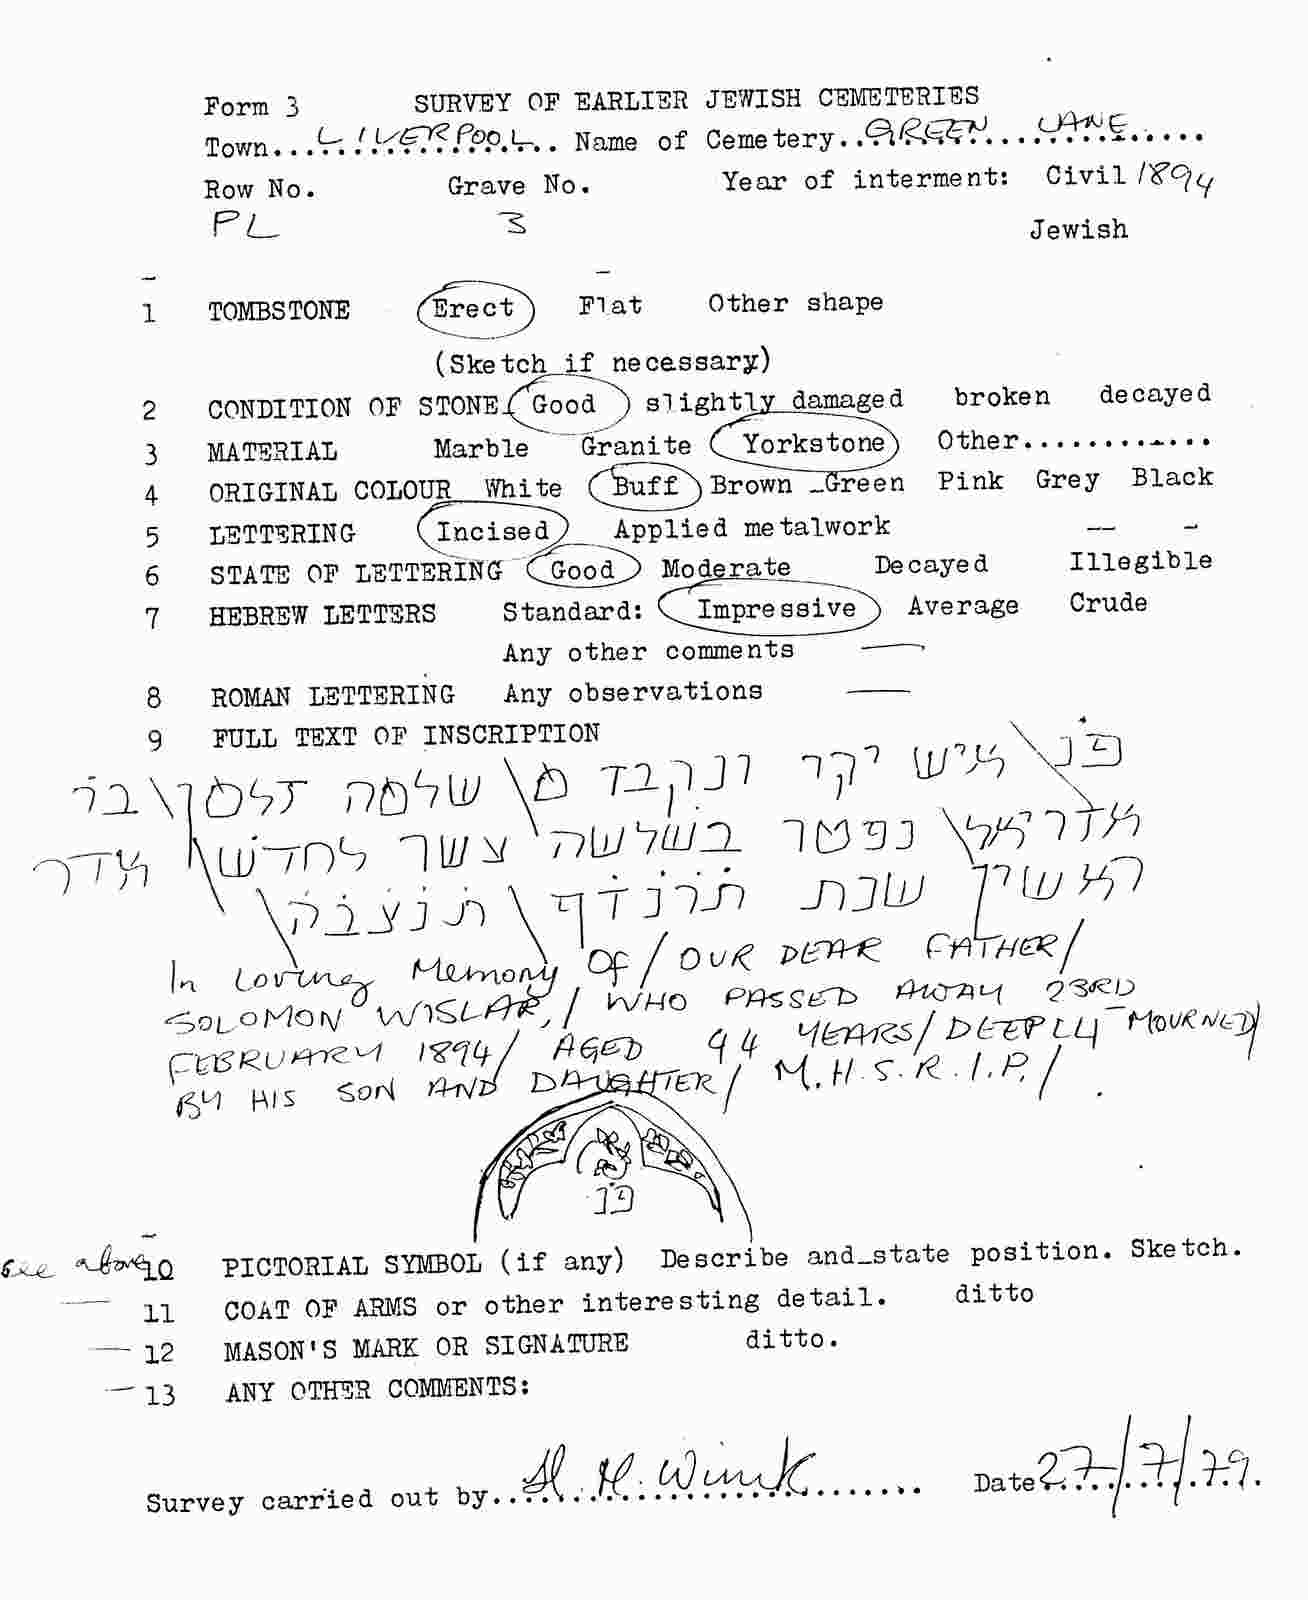 Form 3 SURVEY OF EARLIER JEWISH CEMETERIES
Town....LIVERPOOL.... Name of Cemetery..GREEN LANE.....
Row No. Grave No. Year of interment: Civil 1894
PL 3 Jewish
1 TOMBSTONE Erect Flat Other shape
(Sketch if necessary)
2 CONDITION OF STONE Good slightly damaged broken decayed
3 MATERIAL Marble Granite Yorkstone Other............
4 ORIGINAL COLOUR White Buff Brown Green Pink Grey Black
5 LETTERING Incised Applied metalwork
6 STATE OF LETTERING Good Moderate Decayed Illegible
7 HEBREW LETTERS Standard: Impressive Average Crude
Any other comments —
8 ROMAN LETTERING Any observations —
9 FULL TEXT OF INSCRIPTION
פנ\ איש יקר ונקבד מ\ שלמה זלמן\ בר
אדריאל\ נפטר בשלשה עשר לחדש\ אדר
ראשון שנת תרנדף\ תנצבה\
In Loving Memory Of/ OUR DEAR FATHER/
SOLOMON WISLAR,/ WHO PASSED AWAY 23RD
FEBRUARY 1894/ AGED 44 YEARS/ DEEPLY MOURNED/
BY HIS SON AND DAUGHTER/ M.H.S.R.I.P./.
פנ
see above 10 PICTORIAL SYMBOL (if any) Describe and state position. Sketch.
— 11 COAT OF ARMS or other interesting detail. ditto
— 12 MASON'S MARK OR SIGNATURE ditto.
— 13 ANY OTHER COMMENTS:
Survey carried out by..H. H. Wink....... Date 27/7/79.